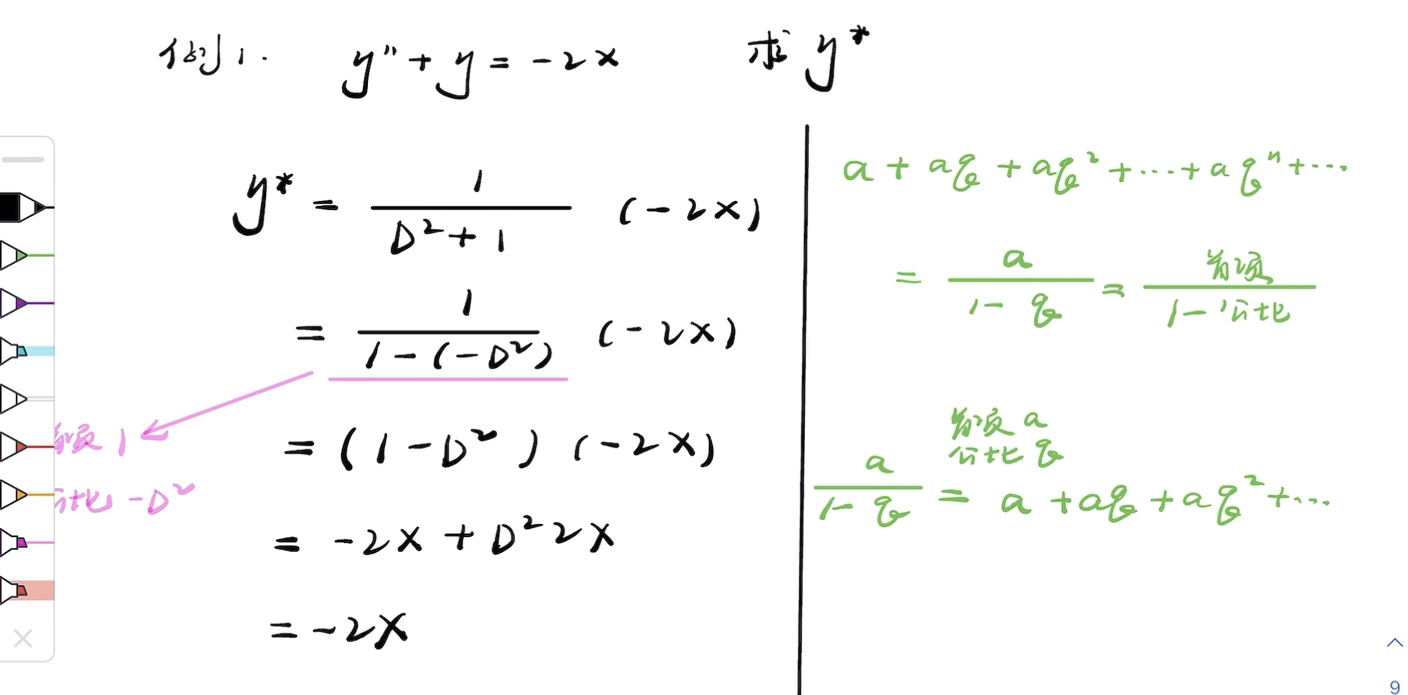 例1. y''+y=-2x 求 y*
y* = 1/(D²+1) (-2x)
= 1/(1-(-D²)) (-2x)
首项 1
公比 -D²
= (1-D²) (-2x)
= -2x + D²2x
= -2x
a + aq + aq² + ... + aqⁿ + ...
= a/(1-q) = 首项/(1-公比)
首项 a
公比 q
a/(1-q) = a + aq + aq² + ...
9